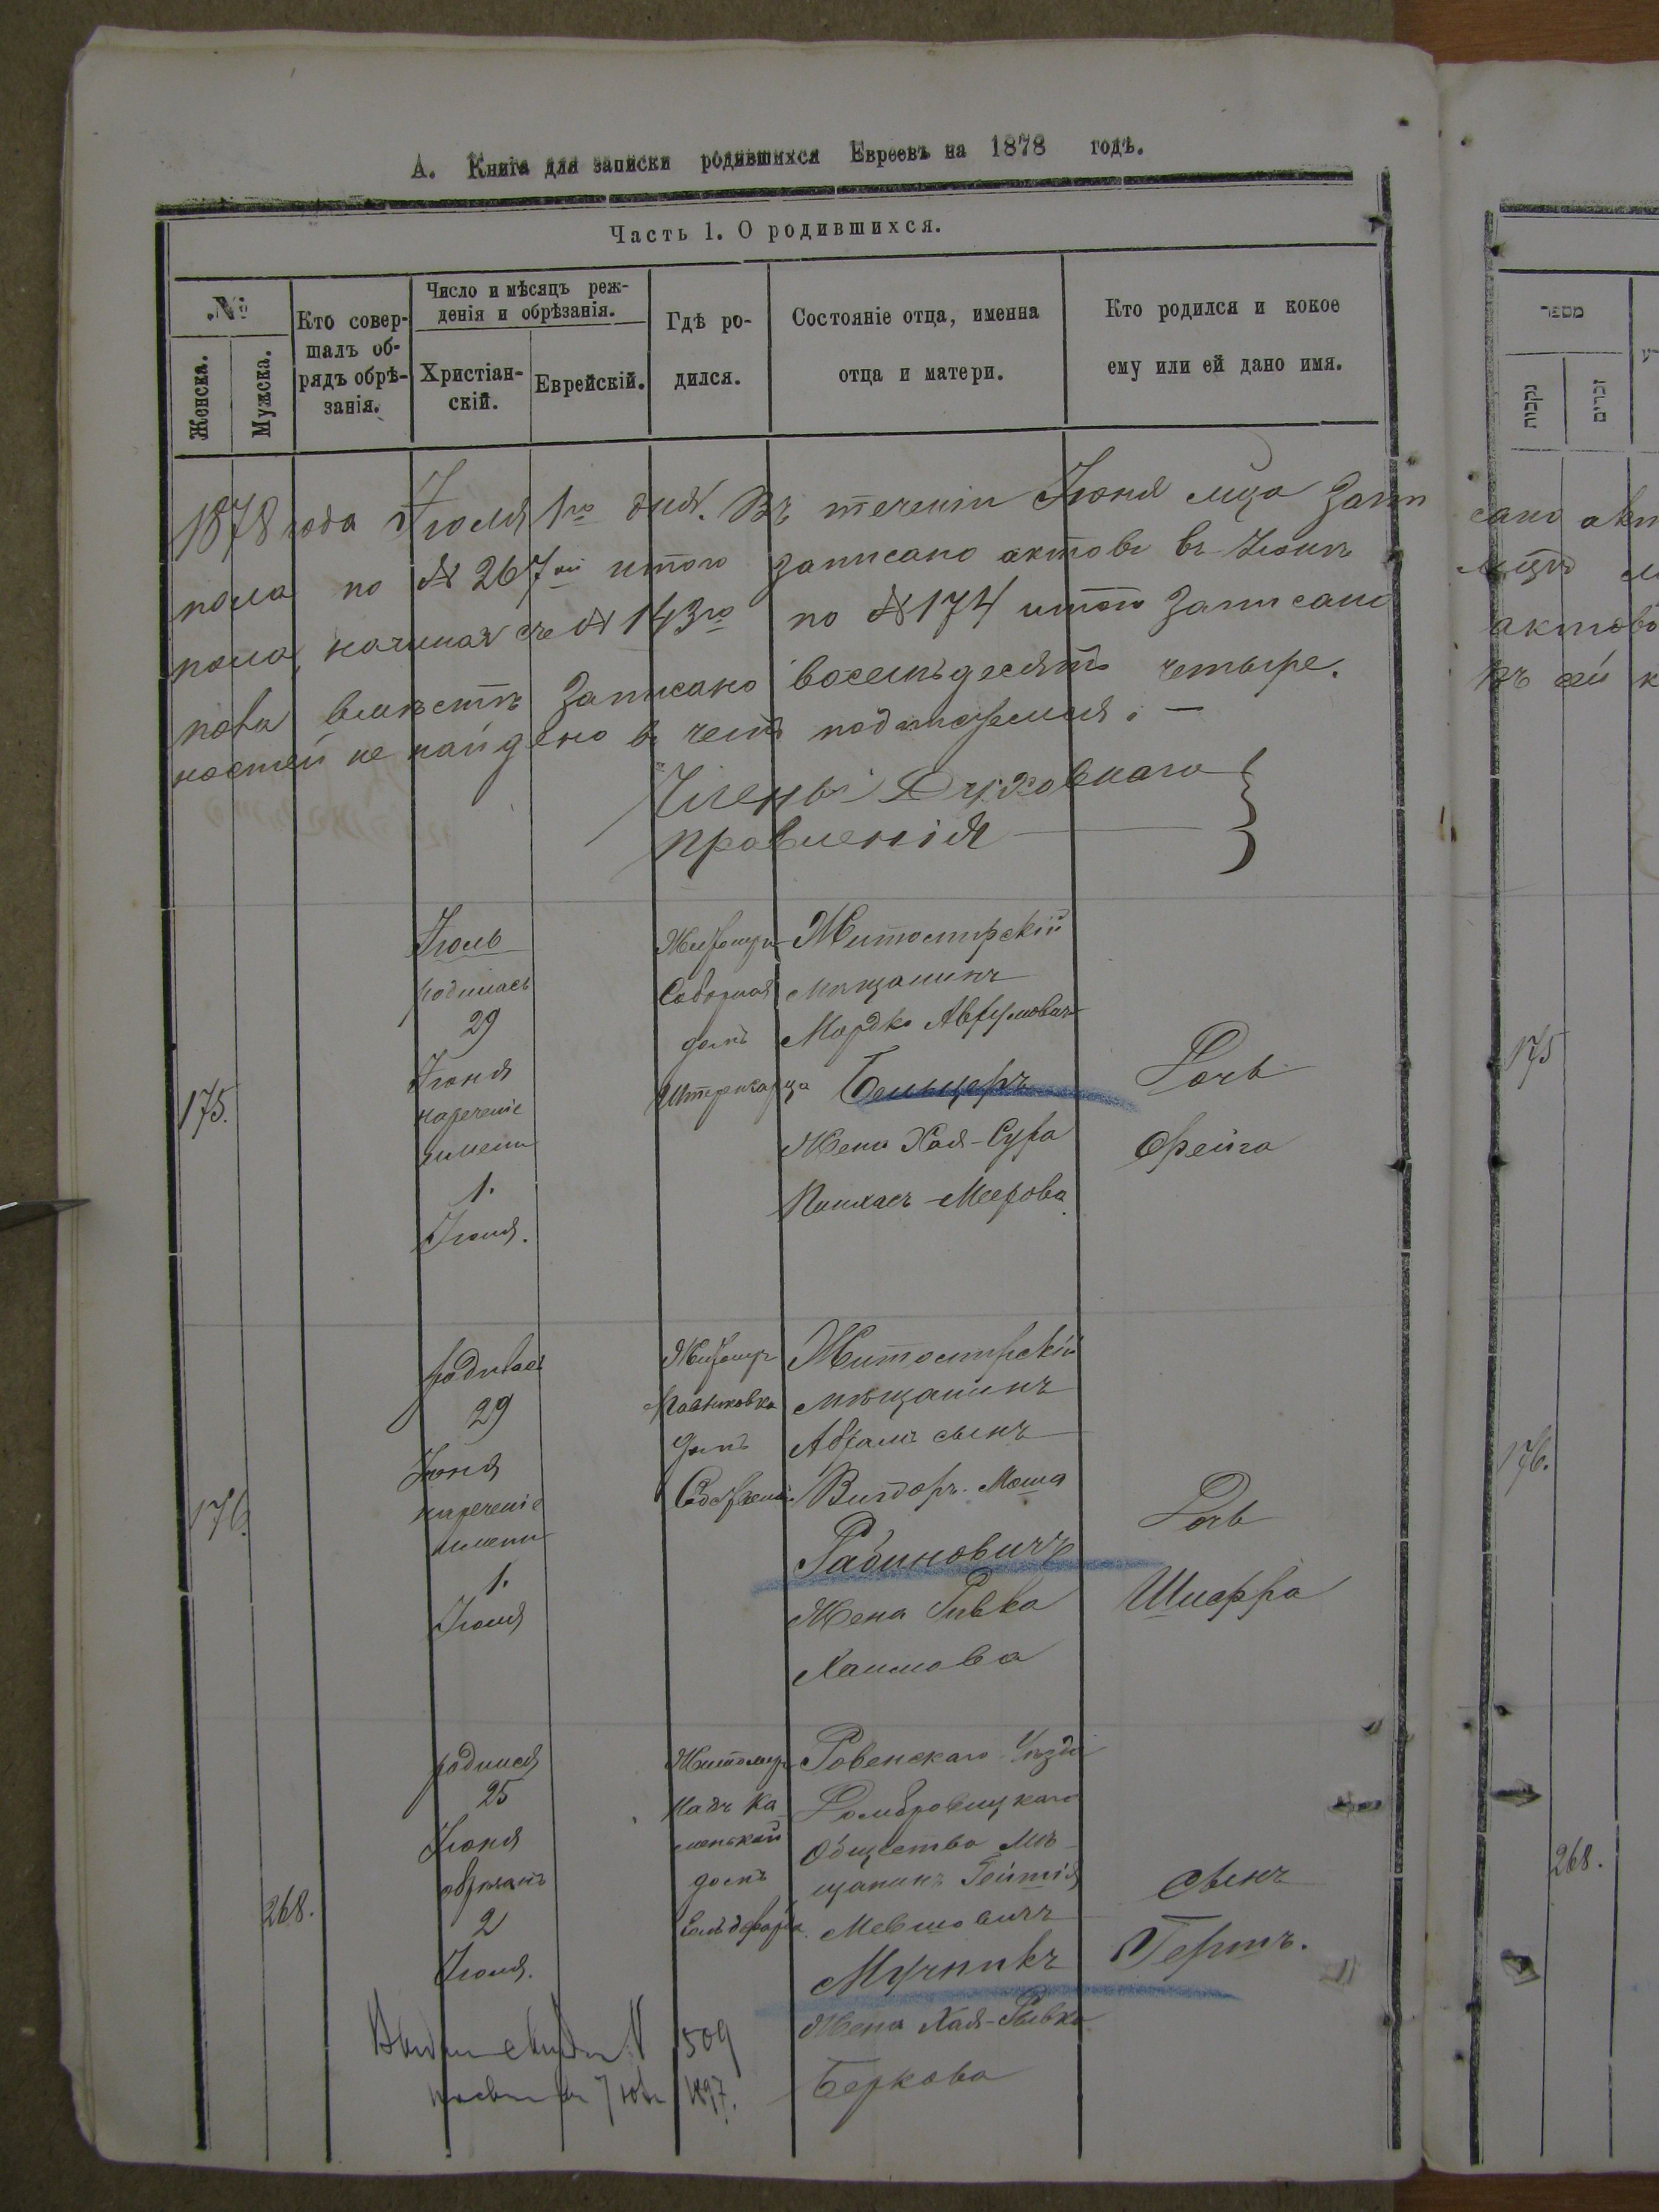 А. Книга для записки родившихся Евреевъ на 1878 годъ.
Часть 1. О родившихся.
№
Женска.
Мужска.
Кто совер-
шалъ об-
рядъ обрѣ-
занія.
Число и мѣсяцъ реж-
денія и обрѣзанія.
Христіан-
скій.
Еврейскій.
Гдѣ ро-
дился.
Состояніе отца, именна
отца и матери.
Кто родился и кокое
ему или ей дано имя.
1878 года Іюля 1го дня. Въ теченіи Іюня мца запи
пола по № 267й итого записано актовъ въ Іюнѣ
пола, начиная съ № 143го по № 174 итого записано
пола вмѣстѣ записано восемьдесятъ четыре.
ностей не найдено въ чемъ подтверждая. —
Члены Духовнаго
правленія
175.
Іюль
родилась
29
Іюня
нареченіе
имени
1.
Іюля.
Житомиръ
Соборная
домъ
Житомирскій
мѣщанинъ
Мордко Аврумовичъ
Бельцеръ
Жена Хая-Сура
Пинхасъ-Меерова
Дочь
Фрейга
176.
родилась
29
Іюня
нареченіе
имени
1.
Іюля
Житомиръ
Павликовка
домъ
Житомирскій
мѣщанинъ
Абрамъ сынъ
Вигдоръ-Моша
Рабиновичъ
Жена Ривка
Хаимова
Дочь
Шифра
268.
родился
25
Іюня
обрѣзанъ
2
Іюля.
Житомиръ
надъ Ка-
менькой
домъ
Ровенскаго Уѣзда
Домбровицкаго
Общества мѣ-
щанинъ
Мевшовичъ
Мучникъ
Жена Хая-Рывка
Беркова
сынъ
Гершъ.
N 509
1897.
מספר
נקבות
זכרים
сано акт
актовъ
175
176.
268.